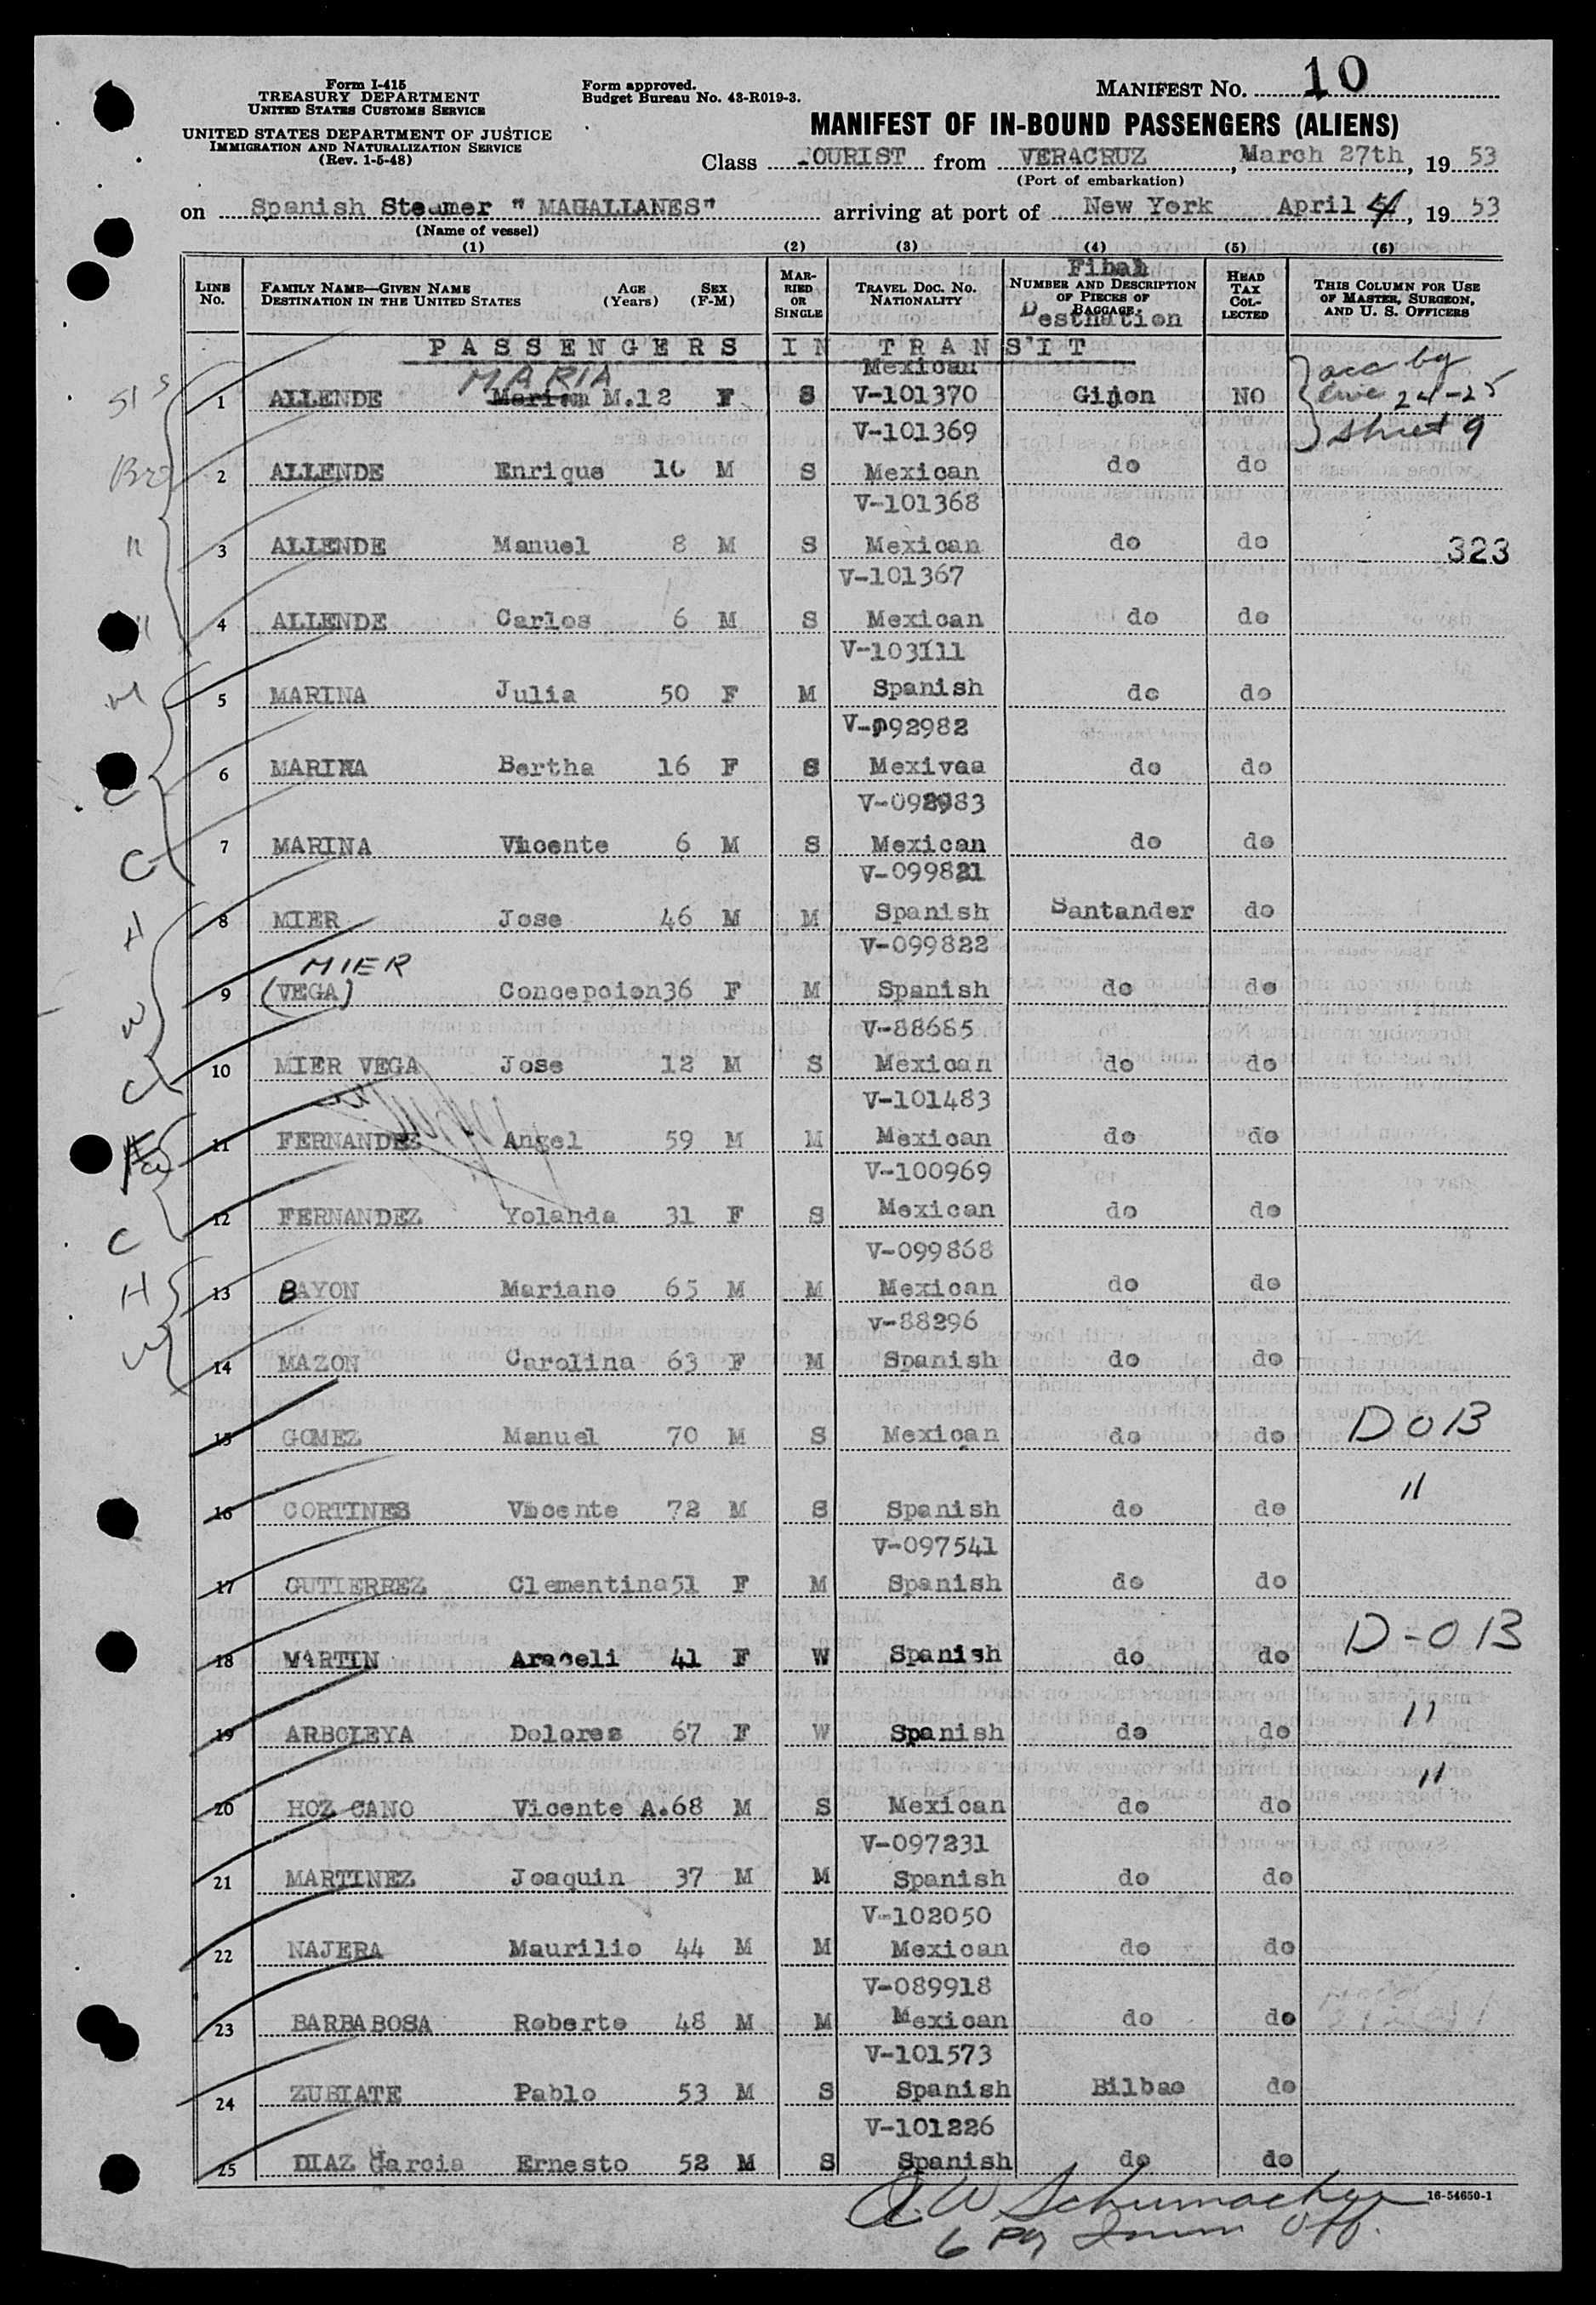 Form I-415
TREASURY DEPARTMENT
UNITED STATES CUSTOMS SERVICE
UNITED STATES DEPARTMENT OF JUSTICE
IMMIGRATION AND NATURALIZATION SERVICE
(Rev. 1-5-48)
Form approved.
Budget Bureau No. 43-R019-3.
MANIFEST NO. 10
MANIFEST OF IN-BOUND PASSENGERS (ALIENS)
Class TOURIST from VERACRUZ, March 27th, 19 53
(Port of embarkation)
on Spanish Steamer "MAGALLANES" arriving at port of New York April 4, 19 53
(Name of vessel)
(1) (2) (3) (4) (5) (6)
LINE NO.
FAMILY NAME—GIVEN NAME AGE SEX
DESTINATION IN THE UNITED STATES (Years) (F-M)
MARRIED OR SINGLE
TRAVEL DOC. NO. NATIONALITY
Final
NUMBER AND DESCRIPTION OF PIECES OF BAGGAGE
Destnation
HEAD TAX COLLECTED
THIS COLUMN FOR USE OF MASTER, SURGEON, AND U. S. OFFICERS
PASSENGERS IN TRANSIT
MARIA Mexican acc by
1 ALLENDE M. 12 F S V-101370 Gijon NO line 24-25
V-101369 sheet 9
2 ALLENDE Enrique 10 M S Mexican do do
V-101368
3 ALLENDE Manuel 8 M S Mexican do do 323
V-101367
4 ALLENDE Carlos 6 M S Mexican do do
V-103111
5 MARINA Julia 50 F M Spanish do do
V-092982
6 MARINA Bertha 16 F S Mexivaa do do
V-092983
7 MARINA Vicente 6 M S Mexican do do
V-099821
8 MIER Jose 46 M M Spanish Santander do
MIER V-099822
9 (VEGA) Concepcion 36 F M Spanish do do
V-88685
10 MIER VEGA Jose 12 M S Mexican do do
V-101483
11 FERNANDEZ Angel 59 M M Mexican do do
V-100969
12 FERNANDEZ Yolanda 31 F S Mexican do do
V-099868
13 BAYON Mariano 65 M M Mexican do do
V-88296
14 MAZON Carolina 63 F M Spanish do do
15 GOMEZ Manuel 70 M S Mexican do do D O B
16 CORTINES Vicente 72 M S Spanish do do "
V-097541
17 GUTIERREZ Clementina 51 F M Spanish do do
18 MARTIN Araceli 41 F W Spanish do do D-O B
19 ARBOLEYA Dolores 67 F W Spanish do do "
20 HOZ CANO Vicente A. 68 M S Mexican do do "
V-097231
21 MARTINEZ Joaquin 37 M M Spanish do do
V-102050
22 NAJERA Maurilio 44 M M Mexican do do
V-089918
23 BARBABOSA Roberto 48 M M Mexican do do
V-101573
24 ZUBIATE Pablo 53 M S Spanish Bilbao do
V-101226
25 DIAZ Garcia Ernesto 52 M S Spanish do do
16-54650-1
A. W. Schumacher
Imm Off.